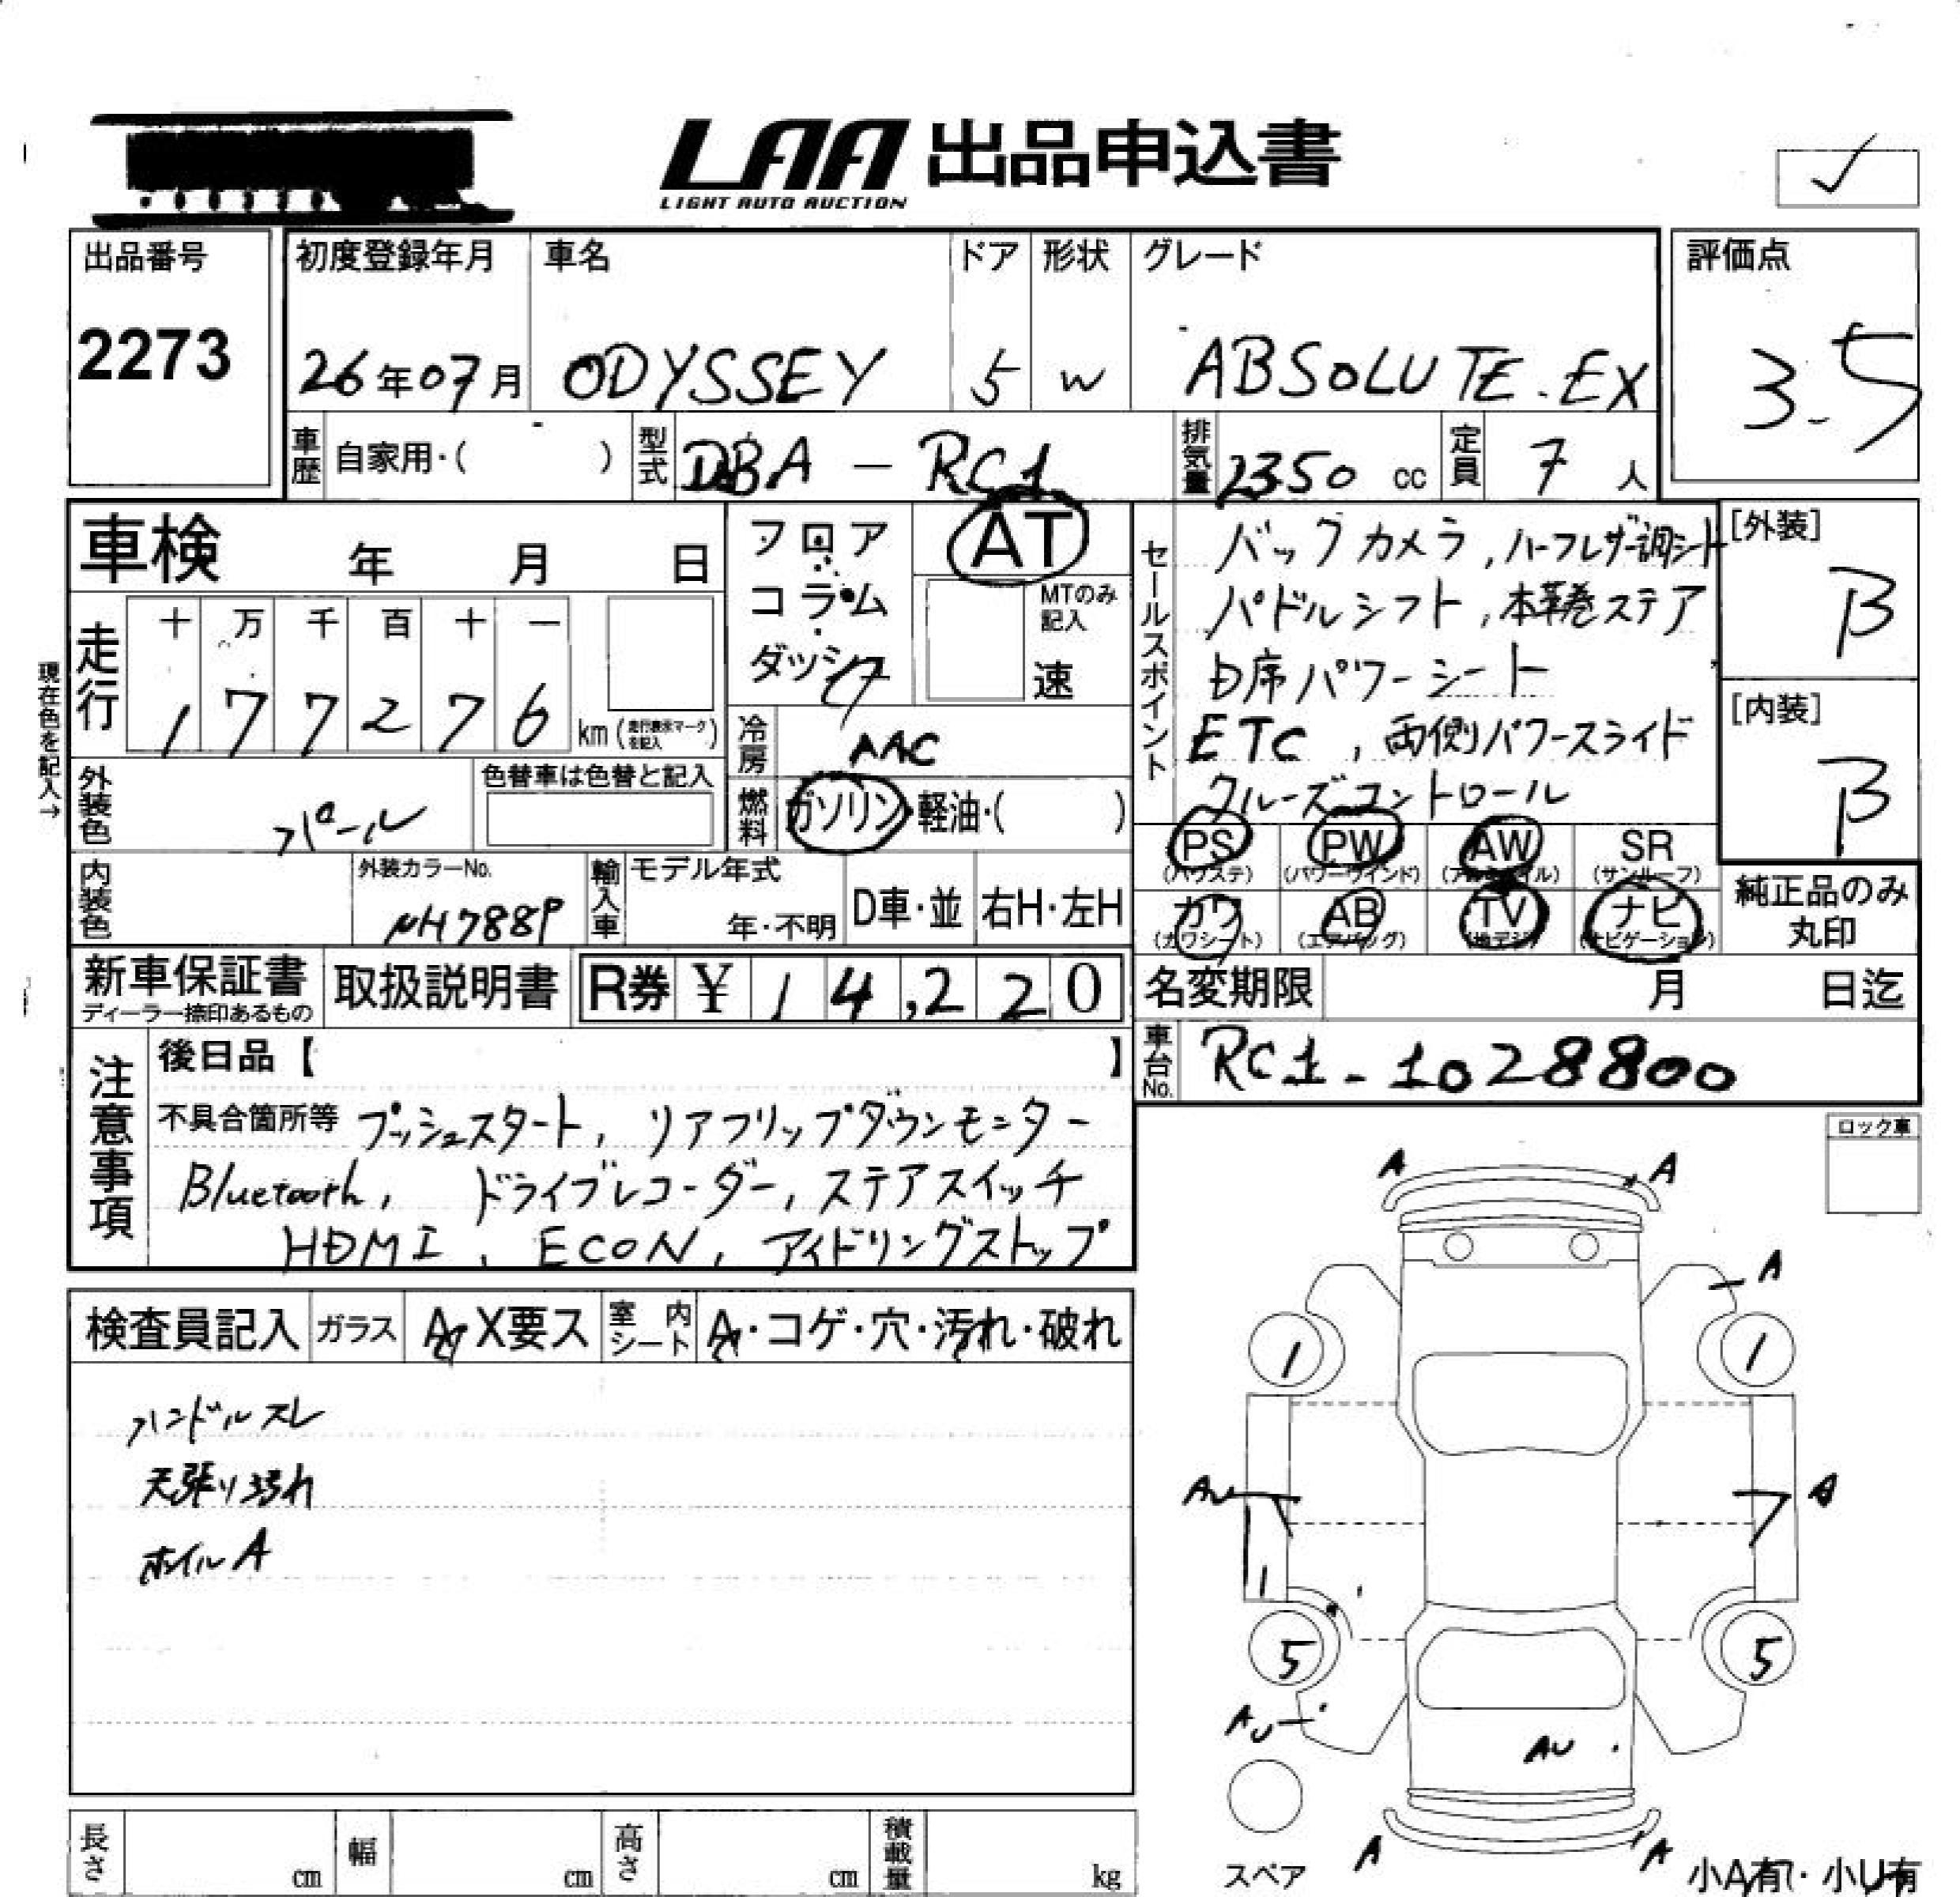 LAA 出品申込書
LIGHT AUTO AUCTION
出品番号
2273
初度登録年月
26年07月
車名
ODYSSEY
ドア
5
形状
W
グレード
ABSOLUTE.EX
評価点
3.5
車歴 自家用・( )
型式 DBA - RC1
排気量 2350 cc
定員 7 人
車検 年 月 日
フロア
コラム
ダッシュ
AT
MTのみ記入
速
セールスポイント
バックカメラ, ハーフレザー調シート
パドルシフト, 本革巻ステア
D席パワーシート
ETC, 両側パワースライド
クルーズコントロール
[外装]
B
[内装]
B
現在色を記入→
走行
十 万 千 百 十 一
1 7 7 2 7 6 km (走行表示マークを記入)
冷房 AAC
燃料 ガソリン・軽油・( )
外装色 パール
色替車は色替と記入
内装色
外装カラーNo.
NH788P
輸入車
モデル年式
年・不明
D車・並
右H・左H
PS (パワステ)
PW (パワーウインド)
AW (アルミホイル)
SR (サンルーフ)
カワ (カワシート)
AB (エアバッグ)
TV (地デジ)
ナビ (ナビゲーション)
純正品のみ
丸印
新車保証書
ディーラー捺印あるもの
取扱説明書
R券 ¥ 14,220
名変期限 月 日迄
車台No. RC1-1028800
注意事項
後日品【 】
不具合箇所等 プッシュスタート, リアフリップダウンモニター
Bluetooth, ドライブレコーダー, ステアスイッチ
HDMI, ECON, アイドリングストップ
ロック車
検査員記入
ガラス A X要ス
室内シート A・コゲ・穴・汚れ・破れ
ハンドルスレ
天張り汚れ
ホイルA
A A
A
1 1
AU A
1
5 5
AU
AU
A A
スペア
小A有・小U有
長さ cm
幅 cm
高さ cm
積載量 kg